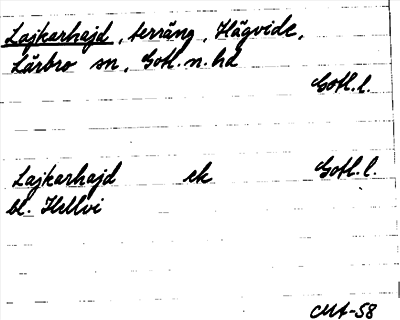 Lajkarhajd, terräng, Hägvide,
Lärbro sn, Gotl. n. hd
Gotl. l.
Lajkarhajd ek Gotl. l.
bl. Hellvi
CMA-58